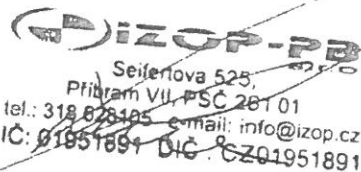 IZOP-PB
s.r.o
Seifertova 525,
Příbram VII, PSČ 261 01
tel.: 318 628105 e-mail: info@izop.cz
IČ: 01951891 DIČ: CZ01951891